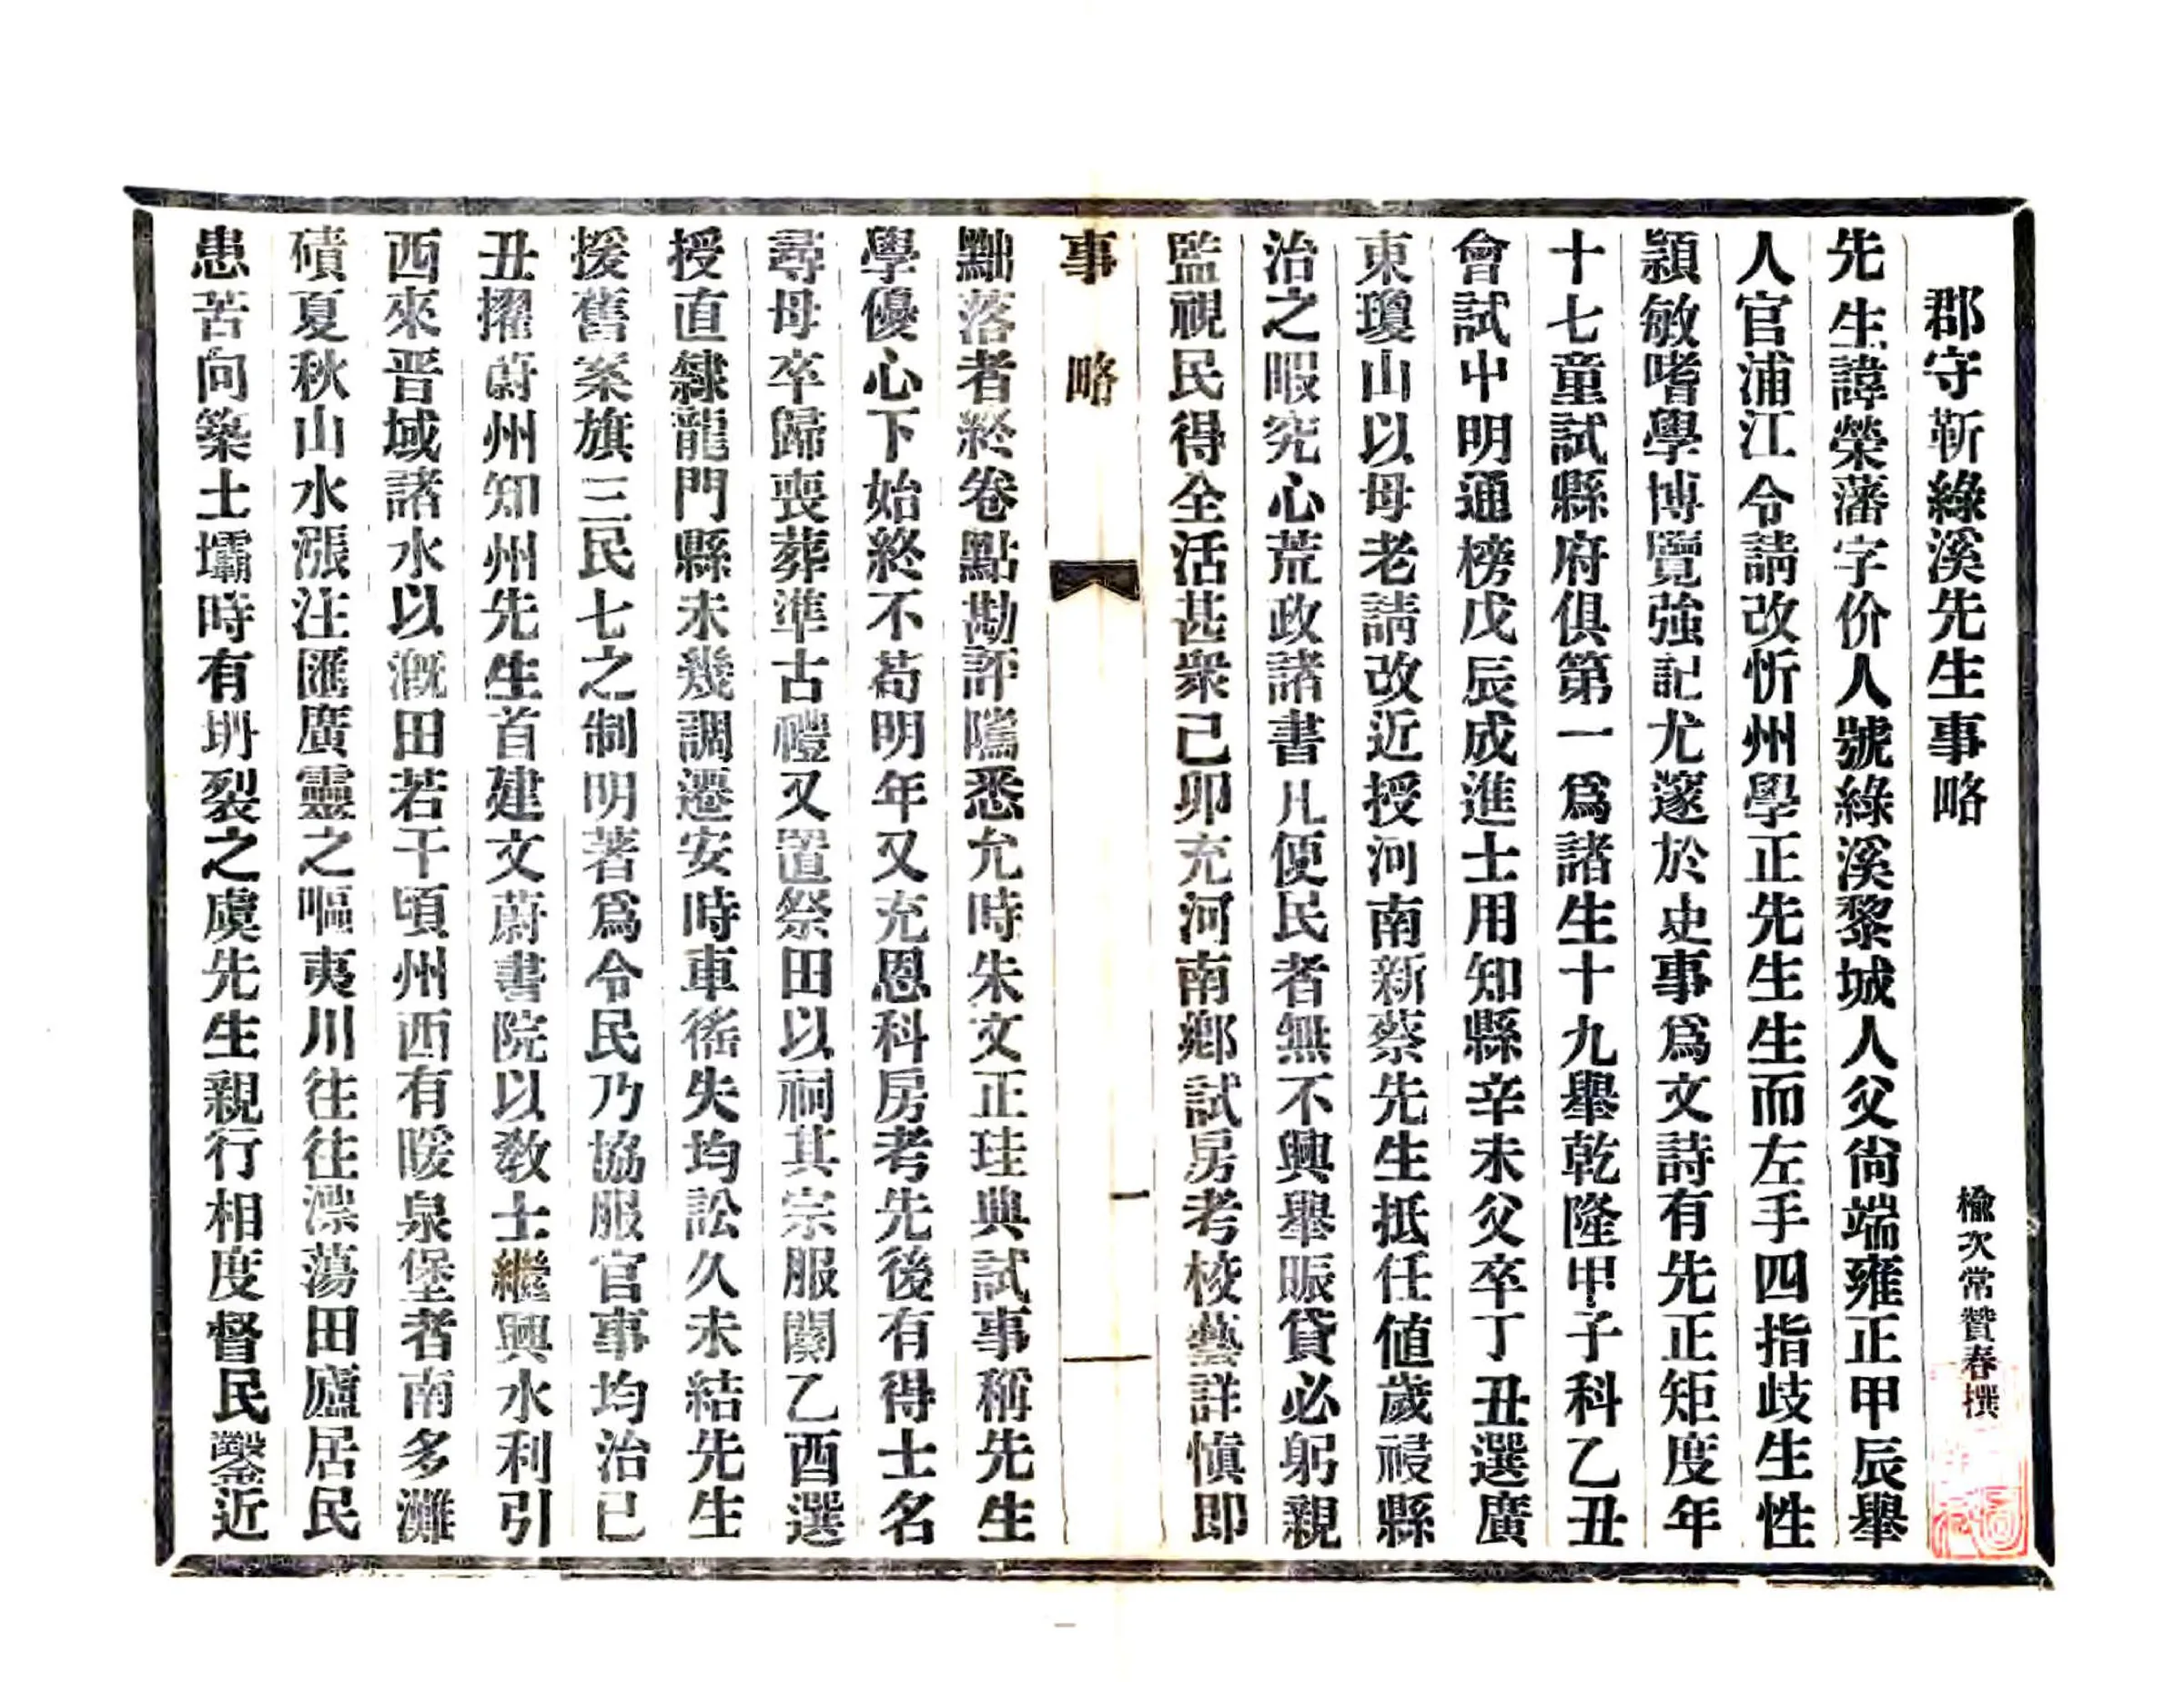 郡守靳綠溪先生事略
榆次常贊春撰
先生諱榮藩字价人號綠溪黎城人父尙端雍正甲辰舉
人官浦江令請改忻州學正先生生而左手四指歧生性
穎敏嗜學博覽強記尤邃於史事爲文詩有先正矩度年
十七童試縣府俱第一爲諸生十九舉乾隆甲子科乙丑
會試中明通榜戊辰成進士用知縣辛未父卒丁丑選廣
東瓊山以母老請改近授河南新蔡先生抵任値歲祲縣
治之暇究心荒政諸書凡便民者無不興舉賑貸必躬親
監視民得全活甚衆己卯充河南鄕試房考校藝詳愼卽
事略
一
黜落者終卷點勘評隲悉允時朱文正珪典試事稱先生
學優心下始終不苟明年又充恩科房考先後有得士名
尋母卒歸喪葬準古禮又置祭田以祠其宗服闋乙酉選
授直隸龍門縣未幾調遷安時車徭失均訟久未結先生
援舊案旗三民七之制明著爲令民乃協服官事均治已
丑擢蔚州知州先生首建文蔚書院以敎士繼興水利引
西來晋域諸水以漑田若干頃州西有暖泉堡者南多灘
磧夏秋山水漲注匯廣靈之嘔夷川往往漂蕩田廬居民
患苦向築土壩時有坍裂之虞先生親行相度督民鑿近